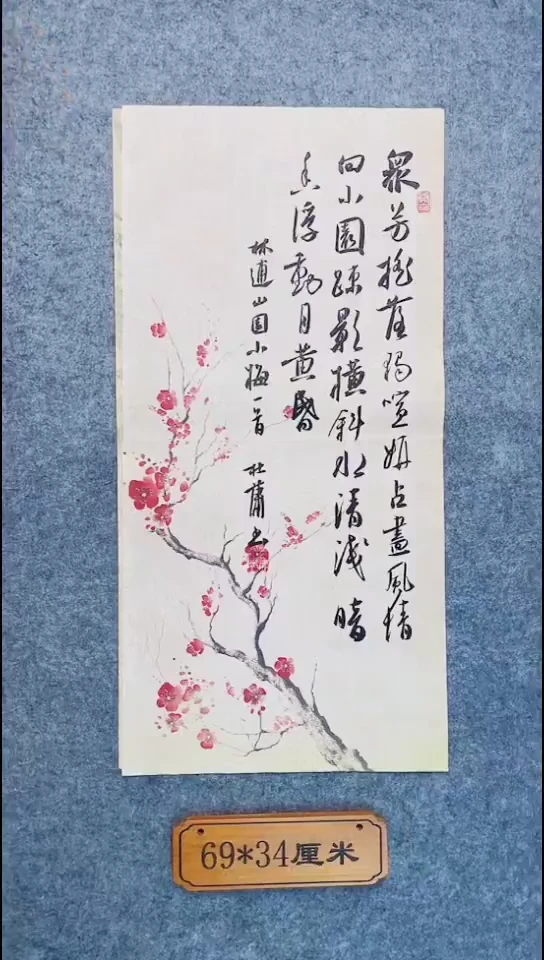 眾芳搖落獨喧妍占盡風情
向小園疎影橫斜水清淺暗
香浮動月黃昏
林逋山园小梅一首 杜萧书
69*34厘米